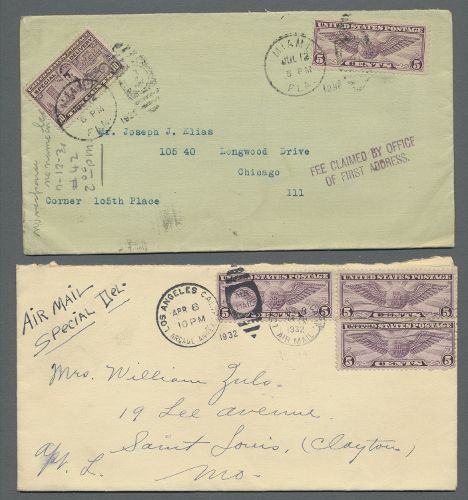 UNITED STATES POSTAGE
5 CENTS 5
MIAMI
JUL 12
5 PM
FLA.
1932
MIAMI
6 PM
FLA.
Mr. Joseph J. Elias
105 40 Longwood Drive
Chicago
Corner 1o5th Place Ill
FEE CLAIMED BY OFFICE
OF FIRST ADDRESS.
no response
7-12-32
#42
2 00 PM
AIR MAIL
Special Del.
LOS ANGELES CALIF.
APR 6
10 PM
ARCADE ANNEX
1932
UNITED STATES POSTAGE
5 CENTS 5
UNITED STATES POSTAGE
5 CENTS 5
1932
AIR MAIL
5 CENTS 5
Mrs. William Zulo.
19 Lee avenue.
Saint Louis, (Clayton)
apt. L. Mo-